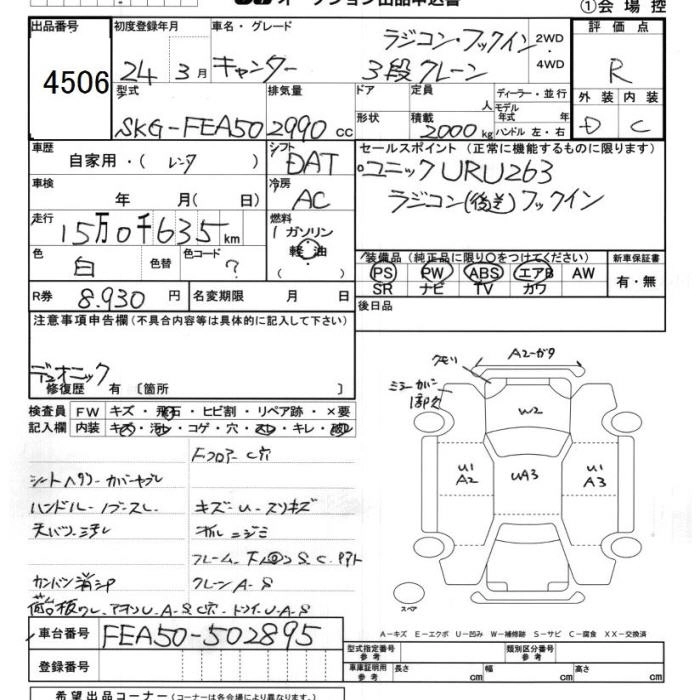 オークション出品申込書
①会場控
出品番号 初度登録年月 車名・グレード 評価点
4506 24 3月 キャンター ラジコン・フックイン 2WD・4WD
3段クレーン
R
型式 排気量 ドア 定員 人 ディーラー・並行 外装 内装
モデル年式 年
SKG-FEA50 2990 cc 形状 積載 2000 kg ハンドル 左・右 D C
車歴 シフト セールスポイント (正常に機能するものに限ります)
自家用・( レンタ ) DAT
車検 年 月( 日) 冷房 AC
ユニック URU263
ラジコン(後送)フックイン
走行 15万0千635km 燃料
ガソリン
軽油
( )
色 白 色替 色コード ?
装備品 (純正品に限り○をつけてください) 新車保証書
PS PW ABS エアB AW 有・無
SR ナビ TV カワ
R券 8.930 円 名変期限 月 日
後日品
注意事項申告欄 (不具合内容等は具体的に記入して下さい)
デュオニック
修復歴 有 〔箇所 〕
検査員 FW キズ・飛石・ヒビ割・リペア跡・×要
記入欄 内装 キズ・汚レ・コゲ・穴・スレ・キレ・破レ
Fフロアー C穴
シートヘタリ カバーヤブレ
ハンドル・ノブスレ キズ-U-スリキズ
天バリ ヨゴレ オイルニジミ
フレーム・下回り S.C.
カンバン消シアト クレーン A-S
荷台板ワレ アオリU-A-S C穴
車台番号 FEA50-502895
登録番号
クモリ A2-ガタ
ミラーカバー
1部欠
W2
U1 A2
UA3
U1 A3
スペア
A-キズ E-エクボ U-凹み W-補修跡 S-サビ C-腐食 XX-交換済
型式指定番号 参考 類別区分番号 参考
車庫証明用 参考 長さ cm 幅 cm 高さ cm
希望出品コーナー (コーナーは各会場により異なります)